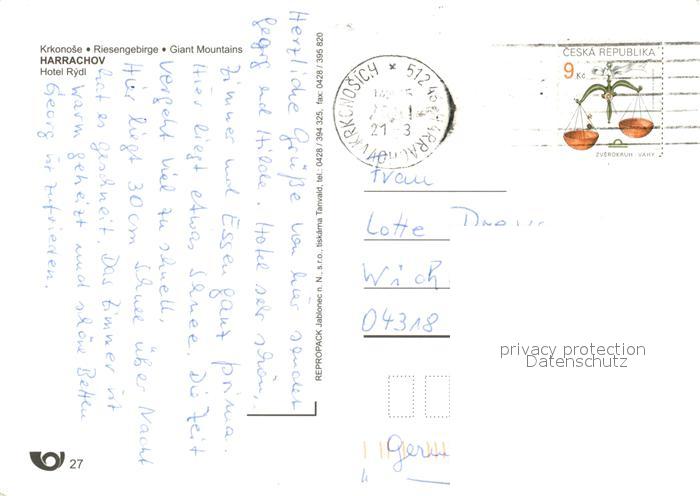 Krkonoše • Riesengebirge • Giant Mountains
HARRACHOV
Hotel Rýdl
Herzliche Grüße von hier sendet
Georg und Hilde. Hotel sehr schön,
Zimmer und Essen ganz prima.
Hier liegt etwas Schnee. Die Zeit
vergeht viel zu schnell,
Hier liegt 30cm Schnee über Nacht
hat es geschneit. Das Zimmer ist
warm geheizt und schöne Betten
Georg ist zufrieden.
REPROPACK Jablonec n. N., s.r.o., tiskárna Tanvald, tel. 0428 / 394 325, fax: 0428 / 395 820
27
V KRKONOŠÍCH * 512 46 HARRACHOV
ČESKÁ REPUBLIKA
9 Kč
ZVĚROKRUH - VÁHY
Frau
Lotte
Wich
04318
Germ
privacy protection
Datenschutz